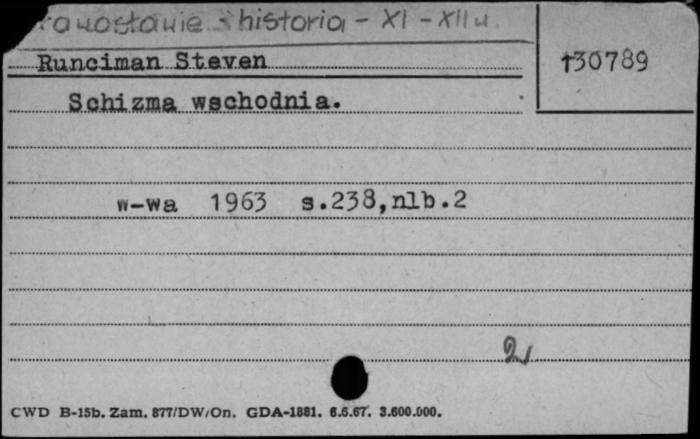 historia - XI - XII w.
Runciman Steven
130789
Schizma wschodnia.
w-wa 1963 s.238,nlb.2
2
CWD B-15b. Zam. 877/DW/On. GDA-1881. 6.6.67. 3.600.000.